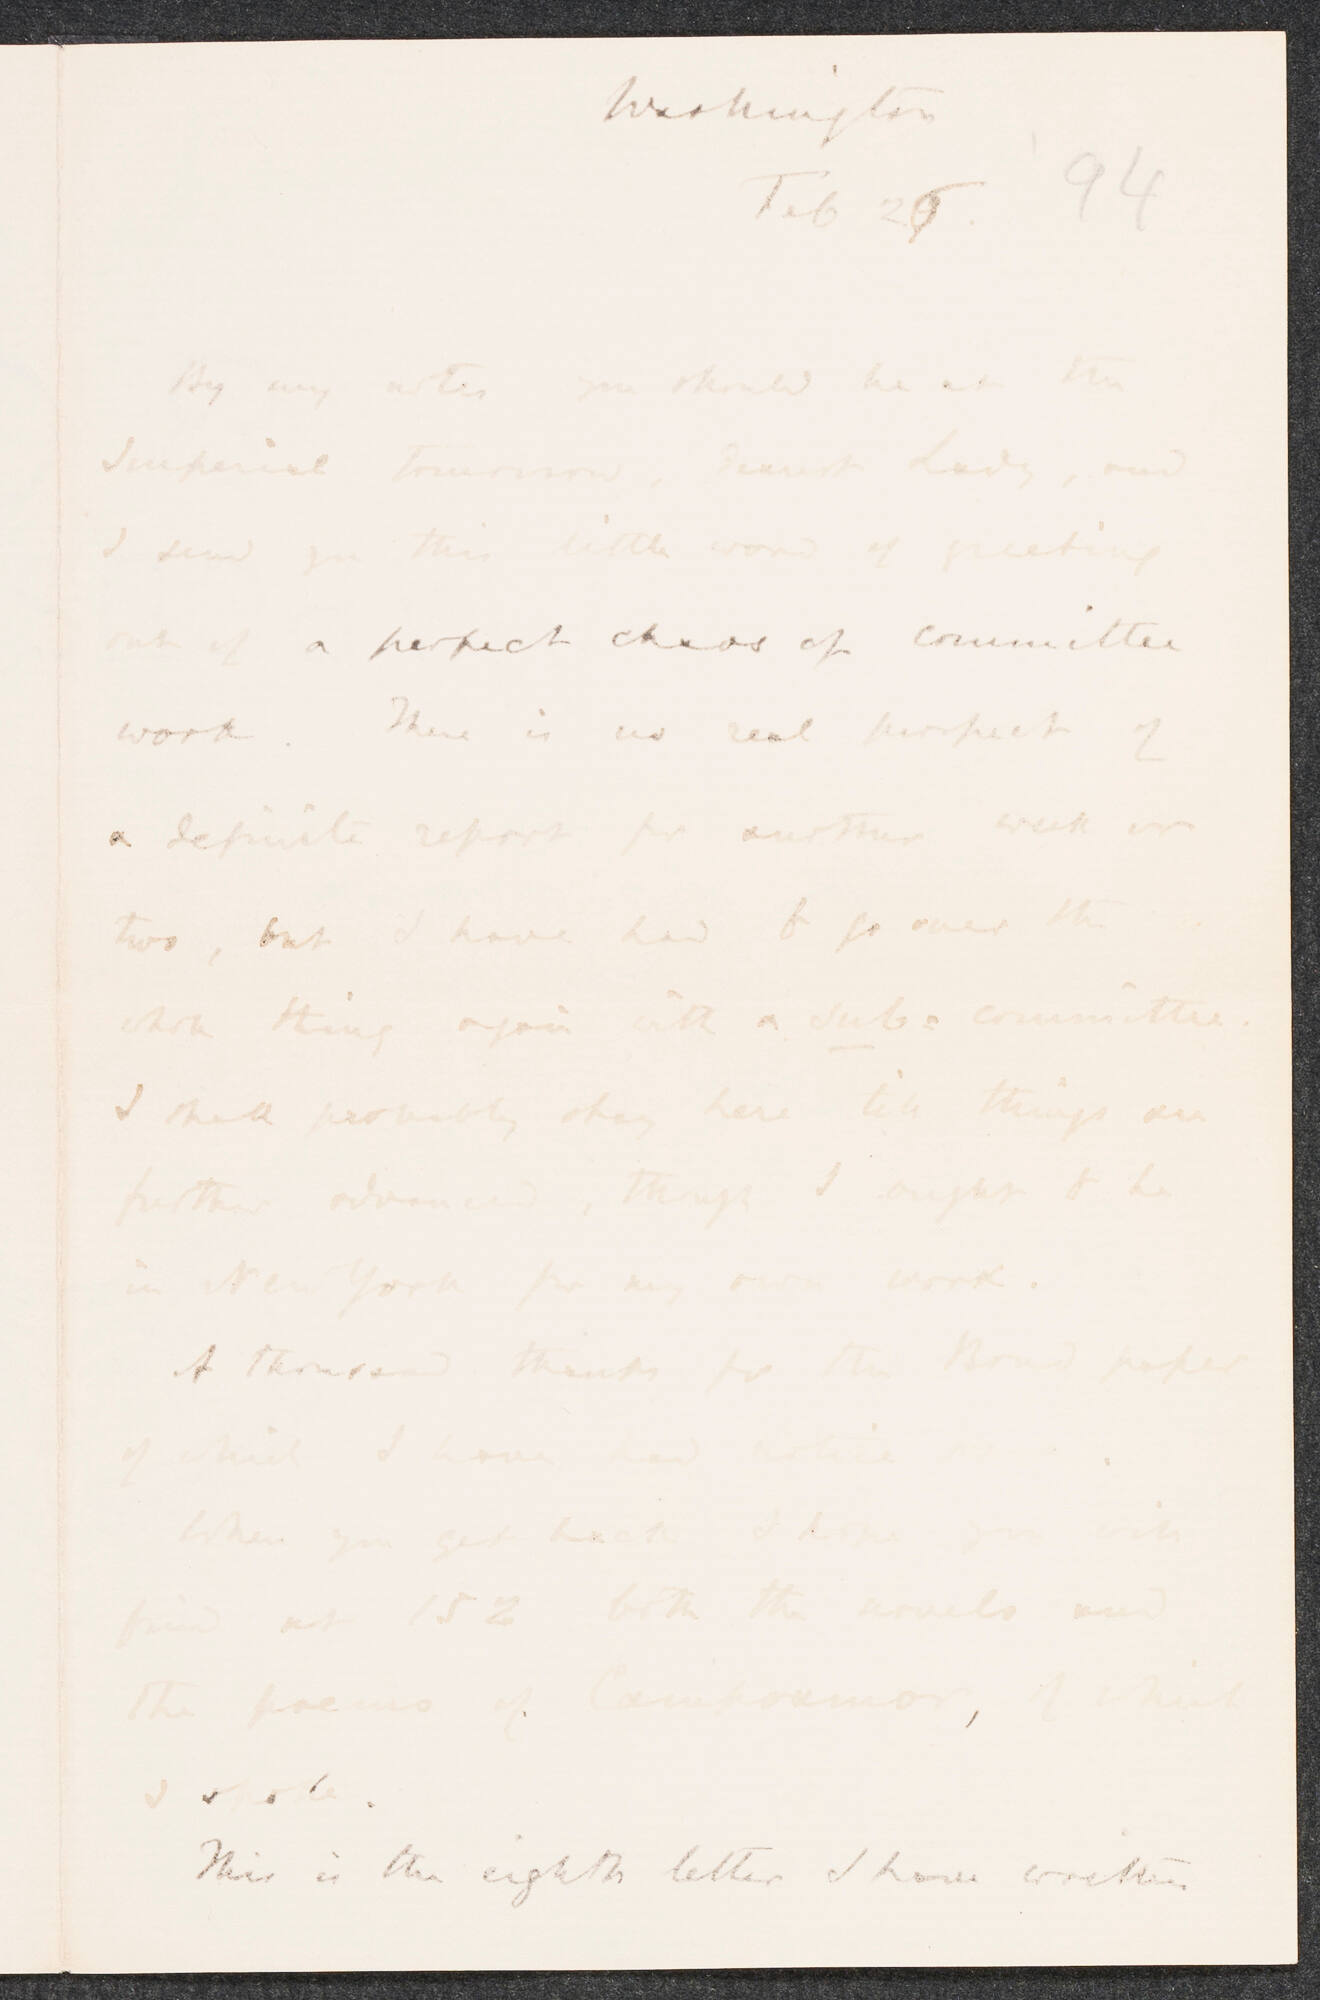 Washington
Feb 25. '94
By my notes you should be at the
Imperial tomorrow, dearest Lady, and
I send you this little word of greeting
out of a perfect chaos of committee
work. There is no real prospect of
a definite report for another week or
two, but I have had to go over the
whole thing again with a sub-committee.
I shall probably stay here till things are
further advanced, though I ought to be
in New York for my own work.
A thousand thanks for the Bond paper
of which I have had notice
When you get back I hope you will
find at 152 both the novels and
the poems of Campoamor, of which
I spoke.
This is the eighth letter I have written